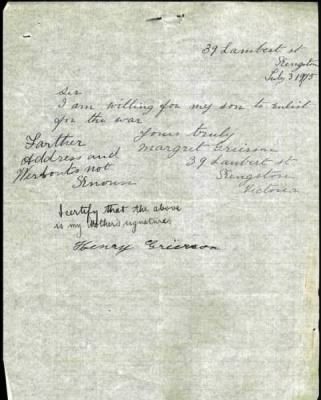 39 Lambert st
Kengston
July 3 1915
Sir
I am willing for my son to enlist
for the war
Yours truly
Margret Grierson
39 Lambert st
Kengston
Victoria
Farther
Address and
Werbouts not
Knoun
I certify that the above
is my Mother's signature
Henry Grierson